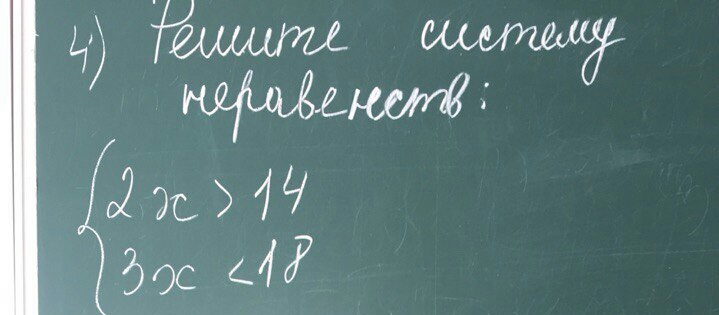 4) Решите систему
неравенств:
{2x > 14
{3x < 18